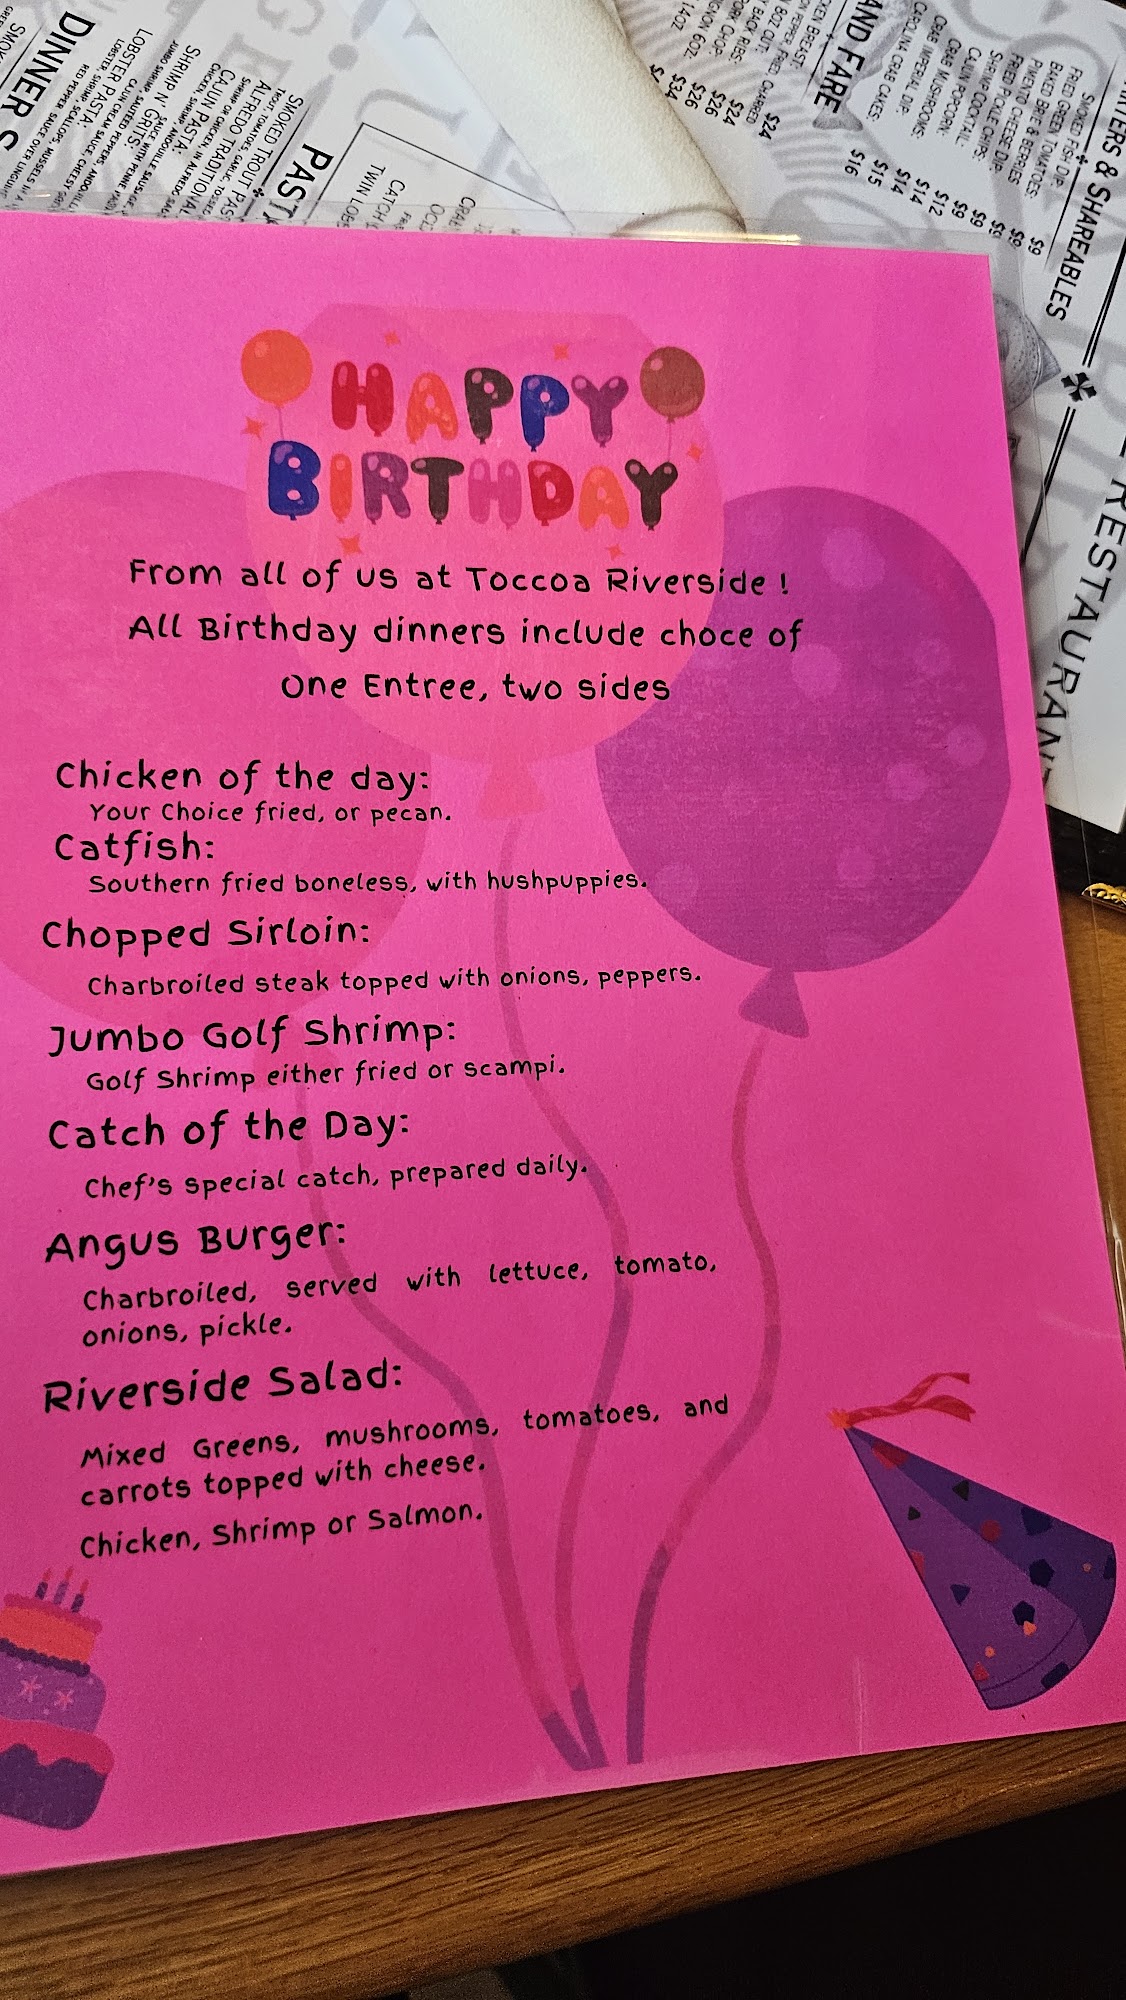 HAPPY
BIRTHDAY
From all of us at Toccoa Riverside !
All Birthday dinners include choce of
One Entree, two sides
Chicken of the day:
Your Choice fried, or pecan.
Catfish:
Southern fried boneless, with hushpuppies.
Chopped Sirloin:
Charbroiled steak topped with onions, peppers.
Jumbo Golf Shrimp:
Golf Shrimp either fried or scampi.
Catch of the Day:
Chef's special catch, prepared daily.
Angus Burger:
Charbroiled, served with lettuce, tomato,
onions, pickle.
Riverside Salad:
Mixed Greens, mushrooms, tomatoes, and
carrots topped with cheese.
Chicken, Shrimp or Salmon.
DINNER
LOBSTER PASTA:
SHRIMP N' GRITS:
CAJUN PASTA:
ALFREDO TRADITIONAL
PAST
TWIN LOBS
& SHAREABLES
SMOKED FISH DIP: $9
FRIED GREEN TOMATOES: $9
BAKED BRIE & BERRIES $9
PIMENTO CHEESE DIP: $9
FRIED PICKLE CHIPS: $9
SHRIMP COCKTAIL: $12
CAJUN POPCORN: $14
CRAB MUSHROOMS: $14
CRAB IMPERIAL DIP: $15
CAROLINA CRAB CAKES: $16
AND FARE
$24
$24
$26
$26
$34
RESTAURANT